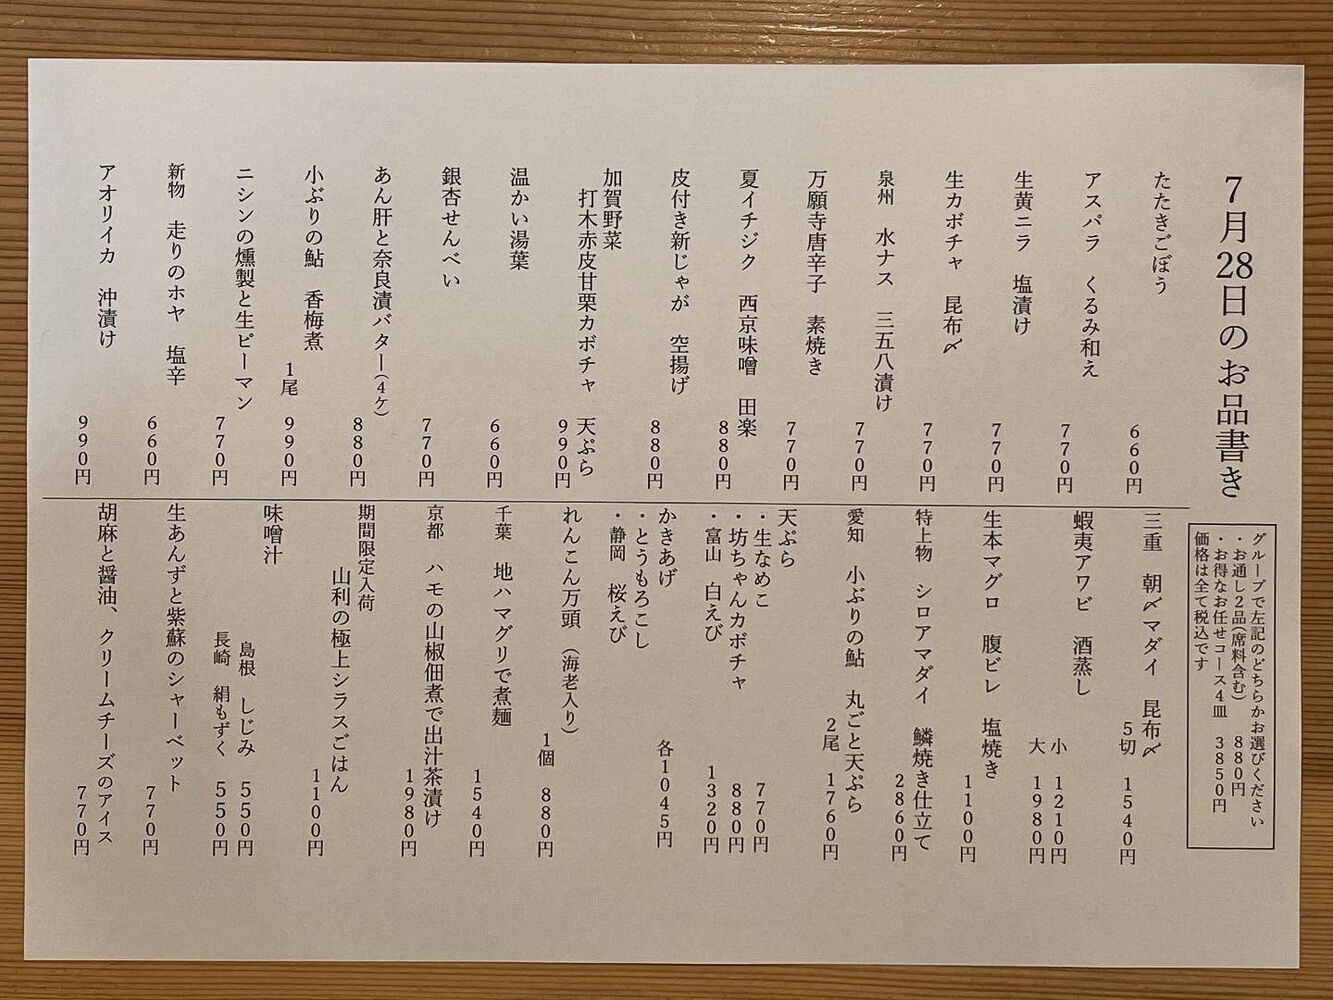 7月28日のお品書き
グループで左記のどちらかお選びください
・お通し2品(席料含む) 880円
・お得なお任せコース4皿 3850円
価格は全て税込です
たたきごぼう 660円
アスパラ くるみ和え 770円
生黄ニラ 塩漬け 770円
生カボチャ 昆布〆 770円
泉州 水ナス 三五八漬け 770円
万願寺唐辛子 素焼き 770円
夏イチジク 西京味噌 田楽 880円
皮付き新じゃが 空揚げ 880円
加賀野菜
打木赤皮甘栗カボチャ 天ぷら 990円
温かい湯葉 660円
銀杏せんべい 770円
あん肝と奈良漬バター(4ケ) 880円
小ぶりの鮎 香梅煮 1尾 990円
ニシンの燻製と生ピーマン 770円
新物 走りのホヤ 塩辛 660円
アオリイカ 沖漬け 990円
三重 朝〆マダイ 昆布〆 5切 1540円
蝦夷アワビ 酒蒸し 小 1210円
大 1980円
生本マグロ 腹ビレ 塩焼き 1100円
特上物 シロアマダイ 鱗焼き仕立て 2860円
愛知 小ぶりの鮎 丸ごと天ぷら 2尾 1760円
天ぷら
・生なめこ 770円
・坊ちゃんカボチャ 880円
・富山 白えび 1320円
かきあげ 各1045円
・とうもろこし
・静岡 桜えび
れんこん万頭 (海老入り) 1個 880円
千葉 地ハマグリで煮麺 1540円
京都 ハモの山椒佃煮で出汁茶漬け 1980円
期間限定入荷
山利の極上シラスごはん 1100円
味噌汁
島根 しじみ 550円
長崎 絹もずく 550円
生あんずと紫蘇のシャーベット 770円
胡麻と醤油、クリームチーズのアイス 770円